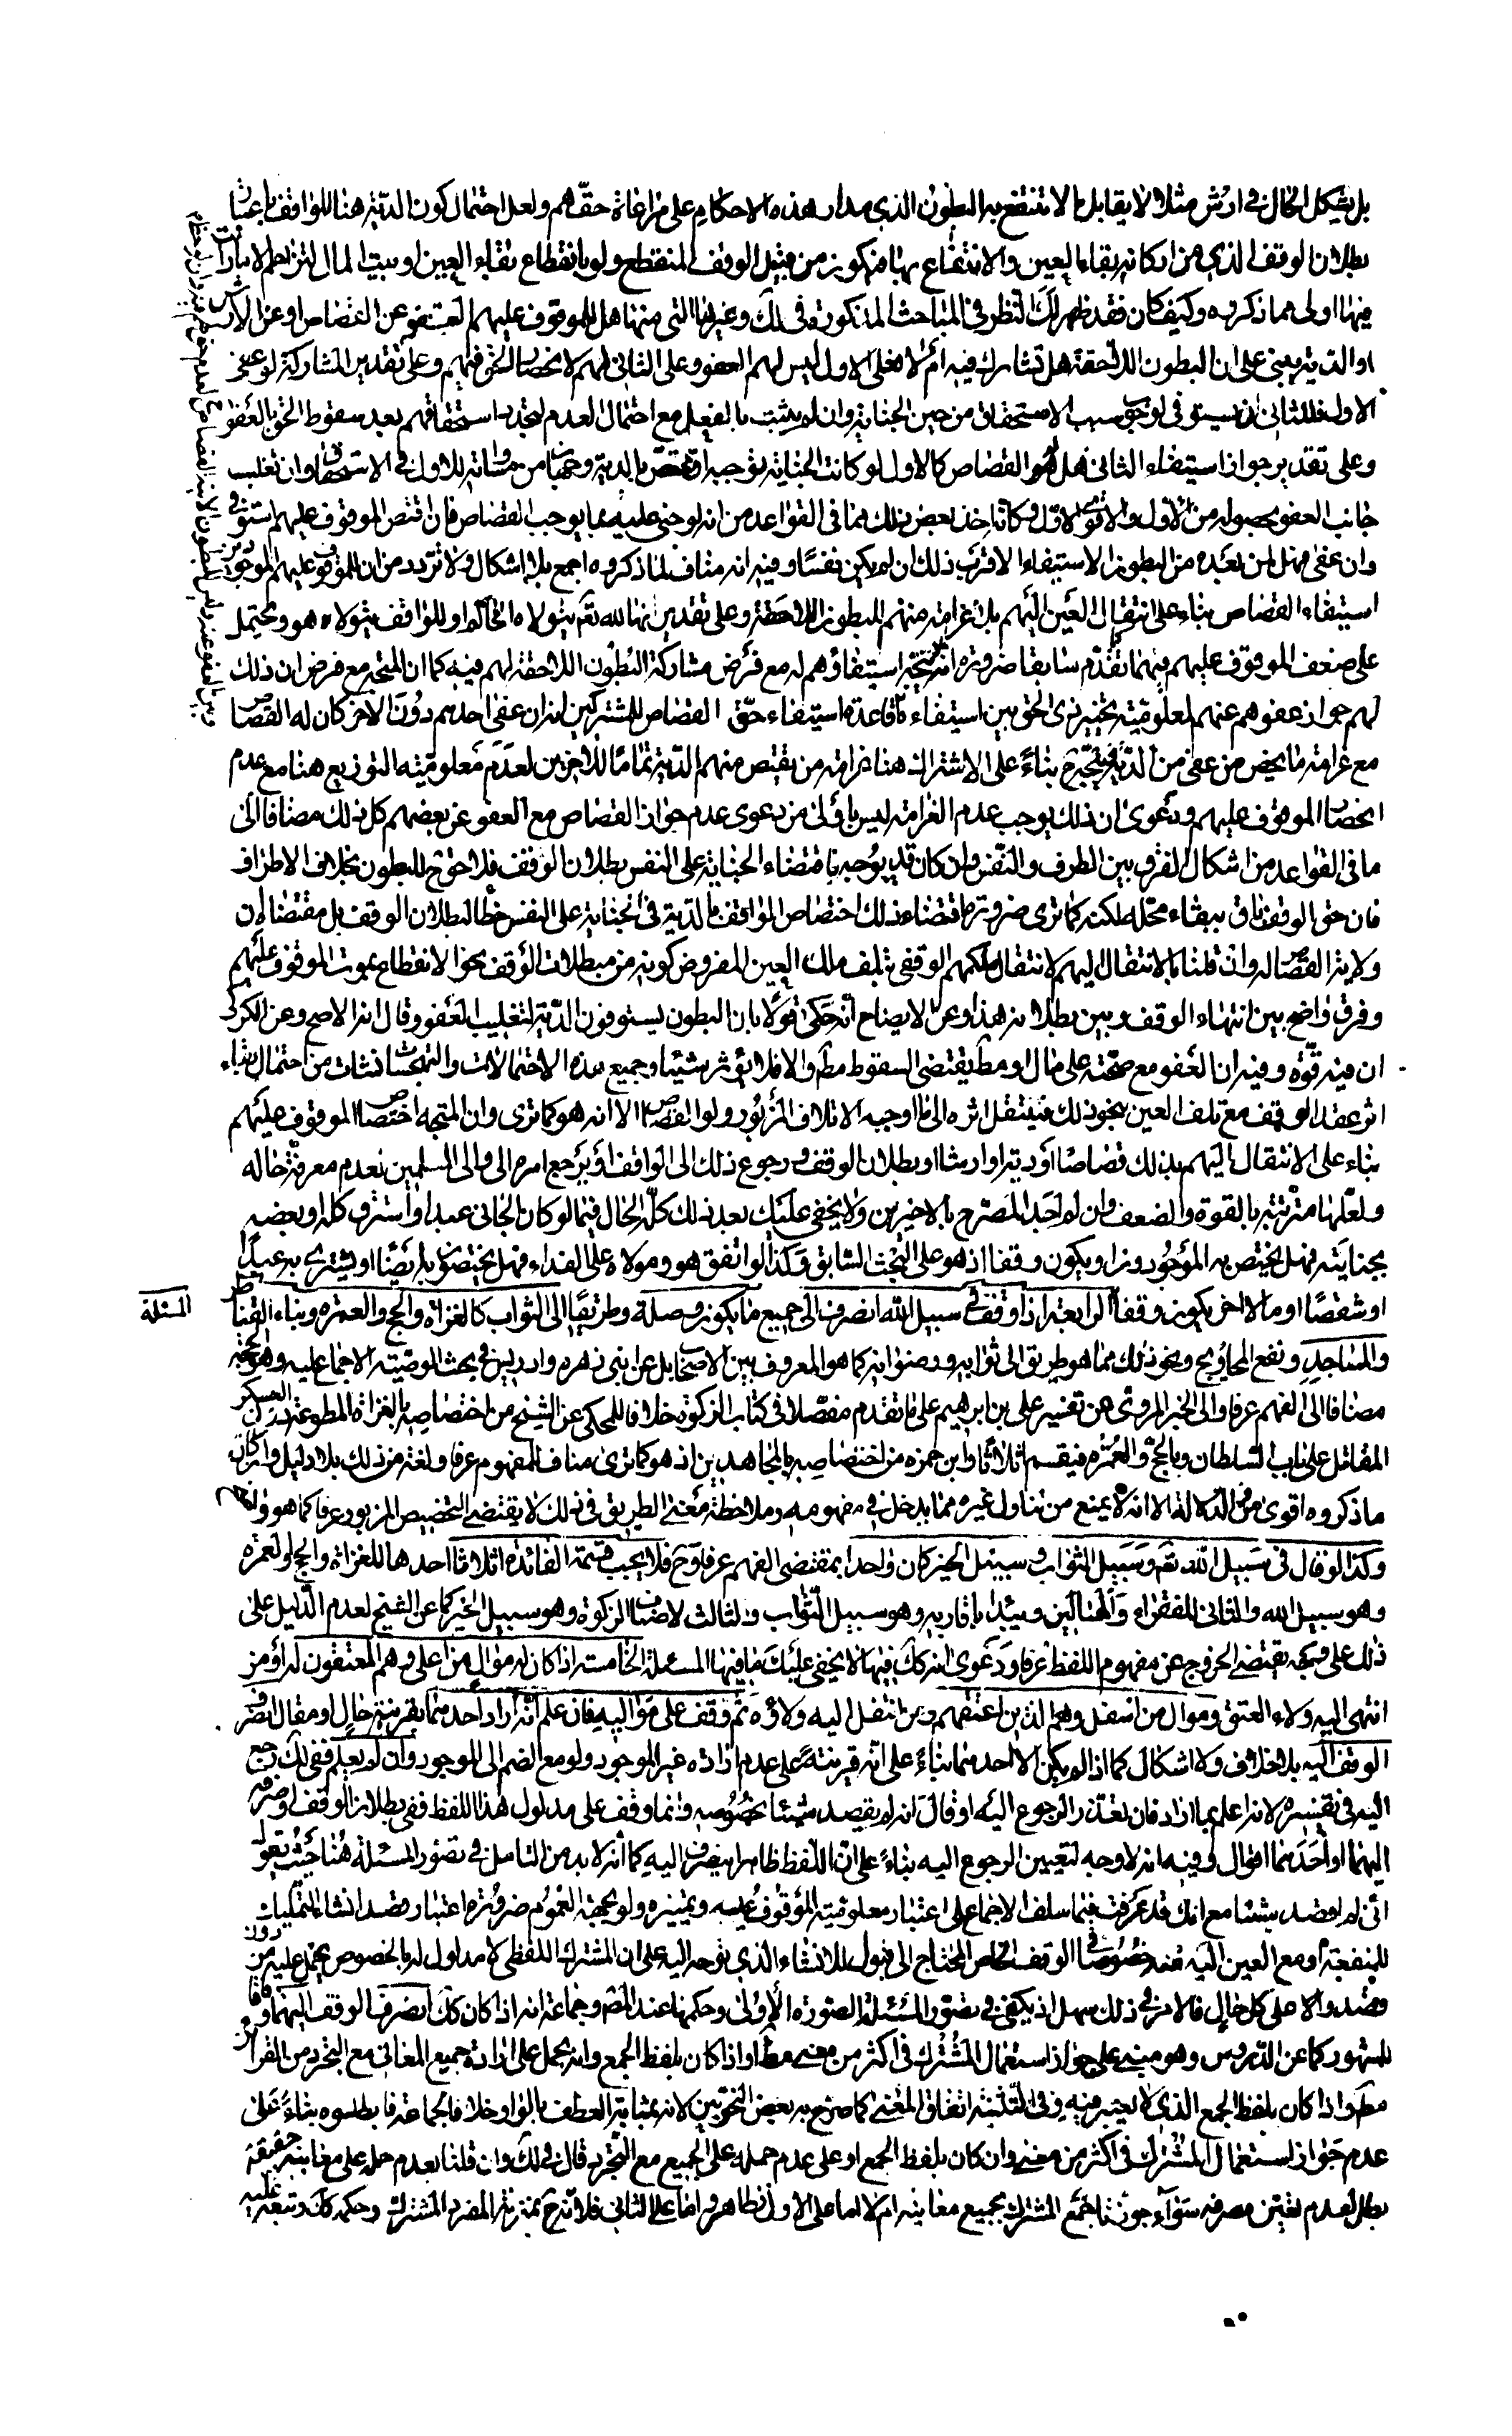 بل يشكل الحال في ارش مثلا لا يقابل ما لا تنتفع به البطون الذي مدار هذه الاحكام على مراعاة حقهم ولعل احتمال كون الدية هنا للواقف باعتبار
بطلان الوقف الذي من اركانه بقاء العين والانتفاع بها فيكون من قبيل الوقف المنقطع ولو بانقطاع بقاء العين او بيت المال لتزاحم الامارات
فيها اولى مما ذكروه وكيف كان فقد ظهر لك النظر في المباحث المذكورة في لك وغيرها التي منها هل للموقوف عليهم العفو عن القصاص او عن الارش
او الدية يبنى على ان البطون اللاحقة هل تشارك فيه ام لا فعلى الاول ليس لهم العفو وعلى الثاني لهم لانحصار الحق فيهم وعلى تقدير المشاركة لو عفى
الاول فللثاني ان يستوفي لوجود سبب الاستحقاق من حين الجناية وان لم يثبت بالفعل مع احتمال العدم لتجدد استحقاقهم بعد سقوط الحق بالعفو
وعلى تقدير جواز استيفاء الثاني هل هو القصاص كالاول لو كانت الجناية توجبه او تختص بالدية وجهان من مساواته للاول في الاستحقاق وان تغليب
جانب العفو بحصوله من الاول والاقوى الاول وكانه اخذ بعض ذلك مما في القواعد من انه لو جنى عليه بما يوجب القصاص فان اقتص الموقوف عليهم استوفى
وان عفى فهل لمن بعده من البطون الاستيفاء الاقرب ذلك ان لم يكن نفسا وفيه انه مناف لما ذكروه اجمع بلا اشكال ولا تردد من ان للموقوف عليهم الموجودين
استيفاء القصاص بناء على انتقال العين اليهم بلا غرامة منهم للبطون اللاحقة وعلى تقدير انها لله تعالى يتولاه الحاكم او للواقف يتولاه هو ويحتمل
على ضعف الموقوف عليهم فيهما تقدم سابقا ضرورة انه يتجه استيفاؤهم له مع فرض مشاركة البطون اللاحقة لهم فيه كما ان المتجه مع فرض ان ذلك
لهم جواز عفوهم عنهم لمعلومية تخيير ذي الحق بين استيفاء قاعدة استيفاء حق القصاص للمشتركين انه ان عفى احدهم دون الاخر كان له القصاص
مع غرامة ما يخص من عفى من الدية فيتجه ح بناء على الاشتراك هنا غرامة من يقتص منهم الدية تماما للاخرين لعدم معلومية التوزيع هنا مع عدم
انحصار الموقوف عليهم ودعوى ان ذلك يوجب عدم الغرامة ليس باولى من دعوى عدم جواز القصاص مع العفو عن بعضهم كل ذلك مضافا الى
ما في القواعد من اشكال الفرق بين الطرف والنفس وان كان قد يوجه باقتضاء الجناية على النفس بطلان الوقف فلا حق ح للبطون بخلاف الاطراف
فان حق الوقف باق ببقاء محله لكنه كما ترى ضرورة اقتضاء ذلك اختصاص الواقف بالدية في الجناية على النفس خطأ لبطلان الوقف بل مقتضاه ان
ولاية القصاص له وان قلنا بالانتقال اليهم لانتقال ملكهم الوقفي بتلف ملك العين المفروض كونه من مبطلات الوقف بخلاف الانقطاع بموت الموقوف عليهم
وفرق واضح بين انتهاء الوقف وبين بطلانه هذا وعن الايضاح انه حكى قولا بان البطون يستوفون الدية لتغليب العفو وقال انه الاصح وعن الكركي
ان فيه قوة وفيه ان العفو مع صحته على مال او مطلقا يقتضي السقوط مطلقا والا فلا يؤثر شيئا وجميع هذه الاحتمالات والتمحلات نشأت من احتمال بقاء
اثر عقد الوقف مع تلف العين بنحو ذلك فينتقل اثره الى ما اوجبه الاتلاف المزبور ولو القصاص الا انه هو كما ترى وان المتجه اختصاص الموقوف عليهم
بناء على الانتقال اليهم بذلك قصاصا او دية او ارشا او بطلان الوقف ورجوع ذلك الى الواقف او يرجع امره الى والي المسلمين لعدم معرفة حاله
ولعلها مترتبة بالقوة والضعف وان لم اجد المصرح بالاخيرين ولا يخفى عليك بعد ذلك كله الحال فيما لو كان الجاني عبدا واسترق كله او بعضه
بجنايته فهل يختص به الموجودون او يكون وقفا اذ هو على البحث السابق وكذا لو اتفق هو ومولاه على الفداء فهل يختصون به ايضا او يشترى به عبدا
او شقصا او ما لا اخر يكون وقفا الرابعة اذا وقف في سبيل الله انصرف الى جميع ما يكون وصلة وطريقا الى الثواب كالغزاة والحج والعمرة وبناء القناطر
المسئلة
والمساجد ونفع المحاويج ونحو ذلك مما هو طريق الى ثوابه ورضوانه كما هو المعروف بين الاصحاب بل عن ابني زهرة وادريس في بحث الوصية الاجماع عليه وهو الحجة
مضافا الى الفهم عرفا والى الخبر المروي عن تفسير علي بن ابراهيم على ما تقدم مفصلا في كتاب الزكوة خلافا للمحكي عن الشيخ من اختصاصه بالغزاة المطوعة دون العسكر
المقاتل على باب السلطان وبالحج والعمرة فيقسم اثلاثا وابن حمزة من اختصاصه بالمجاهدين اذ هو كما ترى مناف للمفهوم عرفا ولغة من ذلك بلا دليل وان كان
ما ذكروه اقوى من الدلالة الا انه لا يمنع من تناول غيره مما يدخل في مفهومه وملاحظة معنى الطريق في ذلك لا يقتضي التخصيص المزبور عرفا كما هو واضح
وكذا لو قال في سبيل الله تعالى وسبيل الثواب وسبيل الخير كان واحدا بمقتضى الفهم عرفا وح فلا يجب قسمة الفائدة اثلاثا احدها للغزاة والحج والعمرة
وهو سبيل الله والثاني للفقراء والمساكين ويبدأ باقاربه وهو سبيل الثواب والثالث لاصناف الزكوة وهو سبيل الخير كما عن الشيخ لعدم الدليل على
ذلك على وجه يقتضي الخروج عن مفهوم اللفظ عرفا ودعوى انه كك فيها لا يخفى عليك ما فيها المسئلة الخامسة اذا كان له موال من اعلى وهم المعتقون له او من
انتهى اليه ولاء العتق وموال من اسفل وهم الذين اعتقهم ومن انتقل اليه ولاؤه ثم وقف على مواليه فان علم انه اراد احدهما بقرينة حال او مقال انصرف
الوقف اليه بلا خلاف ولا اشكال كما اذا لم يكن الا احدهما بناء على انه قرينة على عدم ارادة غير الموجود ولو مع الضم الى الموجود وان لم يعلم ففي لك رجع
اليه في تفسيره لانه اعلم بما اراد فان تعذر الرجوع اليه او قال انه لم يقصد شيئا بخصوصه وانما وقف على مدلول هذا اللفظ ففي بطلان الوقف او صرفه
اليهما او احدهما اقوال وفيه انه لا وجه لتعيين الرجوع اليه بناء على ان اللفظ ظاهر ينصرف اليه كما انه لا بد من التامل في تصور المسئلة هنا حيث يقول
انى لم اقصد شيئا مع انك قد عرفت فيما سلف الاجماع على اعتبار معلومية الموقوف عليه وتميزه ولو بجهة العموم ضرورة اعتبار قصد انشاء التمليك
للمنفعة او مع العين اليه منه خصوصا في الوقف الخاص المحتاج الى قبول للانشاء الذي توجه اليه على ان المشترك اللفظي لا مدلول له بالخصوص يحمل عليه من دون
قصد والا على كل حال فالامر في ذلك سهل اذ يكفي في تصور المسئلة الصورة الاولى وحكمها عند المصنف وجماعة انه اذا كان كك انصرف الوقف اليهما وفاقا
للمشهور كما عن الدروس وهو مبني على جواز استعمال المشترك في اكثر من معنى مطلقا او اذا كان بلفظ الجمع وانه يحمل على ارادة جميع المعاني مع التجرد من القرائن
مطلقا او اذا كان بلفظ الجمع الذي لا يعتبر فيه وفي التثنية اتفاق المعنى كما صرح به بعض النحويين لانه بمثابة العطف بالواو خلافا لجماعة فابطلوه بناء على
عدم جواز استعمال المشترك في اكثر من معنى وان كان بلفظ الجمع او على عدم حمله على الجميع مع التجرد قال في لك وان قلنا بعدم حمله على معانيه حقيقة
بطل لعدم تعين مصرفه سواء جوزنا جمع المشترك بجميع معانيه ام لا اما على الاول فظاهر واما على الثاني فلانه ح بمنزلة المفرد المشترك وحكمه كك وتبعه عليه